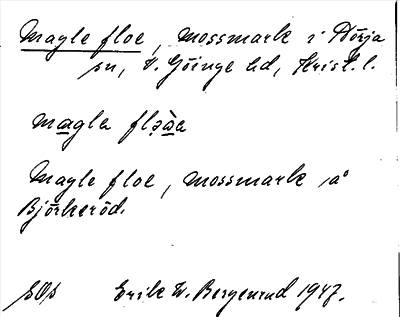 Magle floe, mossmark i Nörja
sn, V. Göinge hd, Krist. l.
magla fləàe
Magle floe, mossmark å
Björkeröd.
SOs Erik W. Borgenrud 1947.